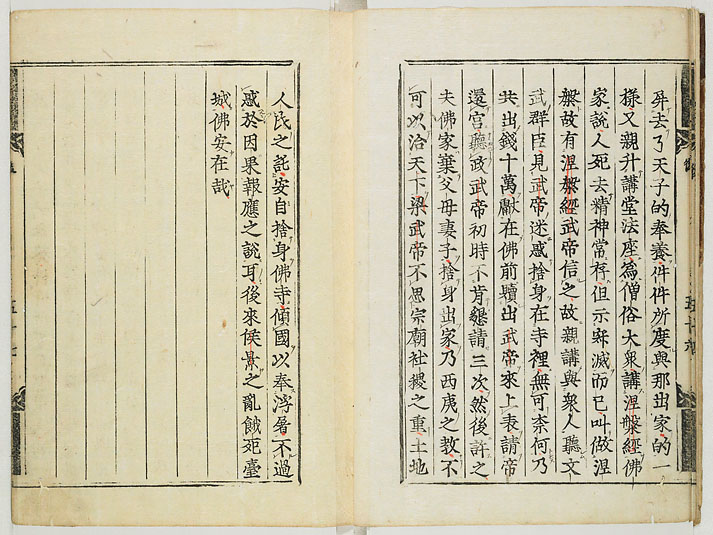 屏去了天子的奉養件件所度與那出家的一
樣又親升講堂法座為僧俗大衆講涅槃經佛
家說人死去精神常存但示寂滅而已叫做涅
槃故有涅槃經武帝信之故親講與衆人聽文
武群臣見武帝迷惑捨身在寺裡無可柰何乃
共出錢十萬獻在佛前贖出武帝來上表請帝
還宫聽政武帝初時不肯懇請三次然後許之
夫佛家棄父母妻子捨身出家乃西夷之教不
可以治天下梁武帝不思宗廟社稷之重土地
人民之託妄自捨身佛寺傾國以奉浮屠不過
惑於因果報應之說耳後來侯景之亂餓死臺
城佛安在哉